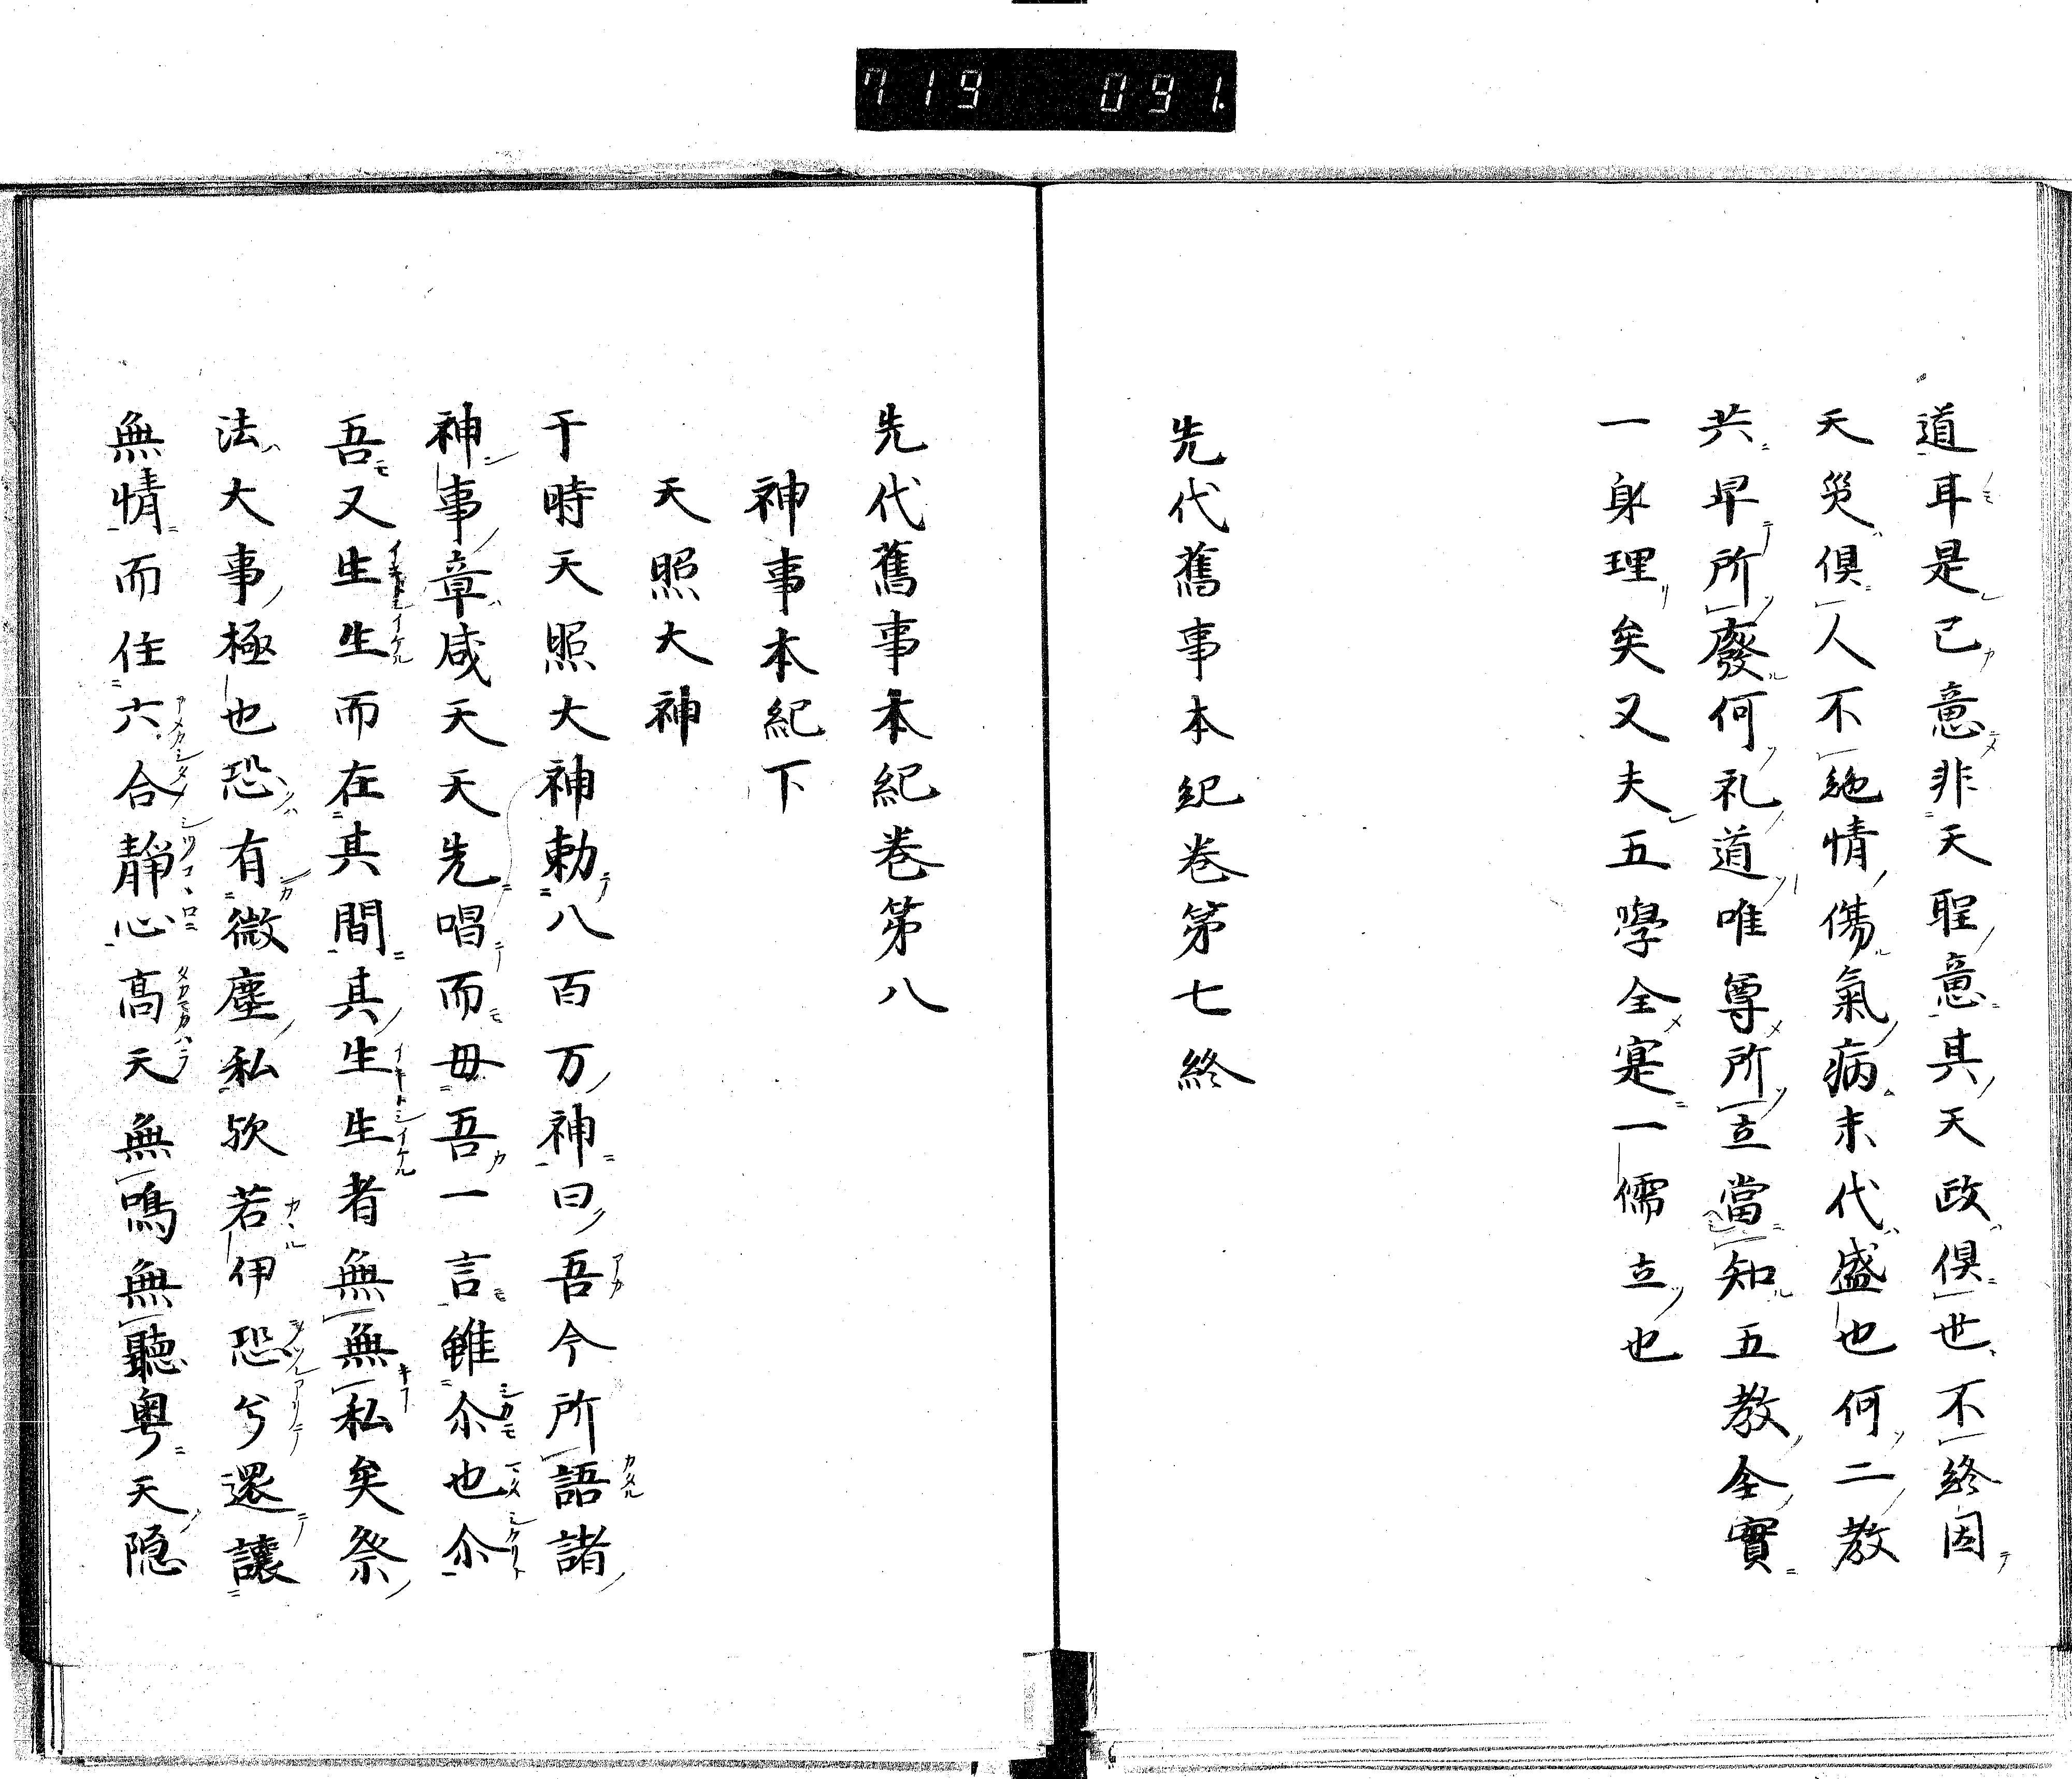 719 091
道耳是己意非天聖意其天政俱世不終因
天災俱人不絶情傷氣病末代盛也何二教
共早所廢何礼道唯尊所立當知五教全實
一身理矣又夫五學全寔一儒立也
先代舊事本紀巻第七終
先代舊事本紀巻第八
神事本紀下
天照大神
于時天照大神勅八百万神曰吾今所語諸
神事章咸天天先唱而毋吾一言雖尒也尒
吾又生生而在其間其生生者無無私矣祭
法大事極也恐有微塵私欤若伊恐兮還讓
無情而住六合靜心高天無鳴無聽粤天隠